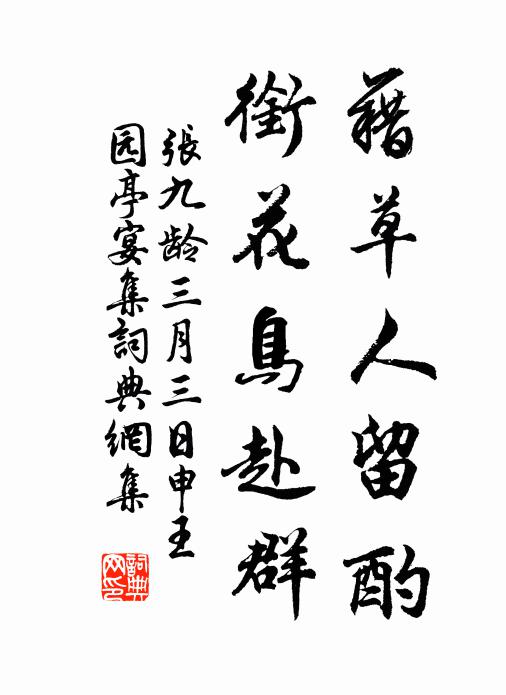 藉草人留酌
銜花鳥赴群
張九龄三月三日申王
园亭宴集詞典網集
詞典
网印